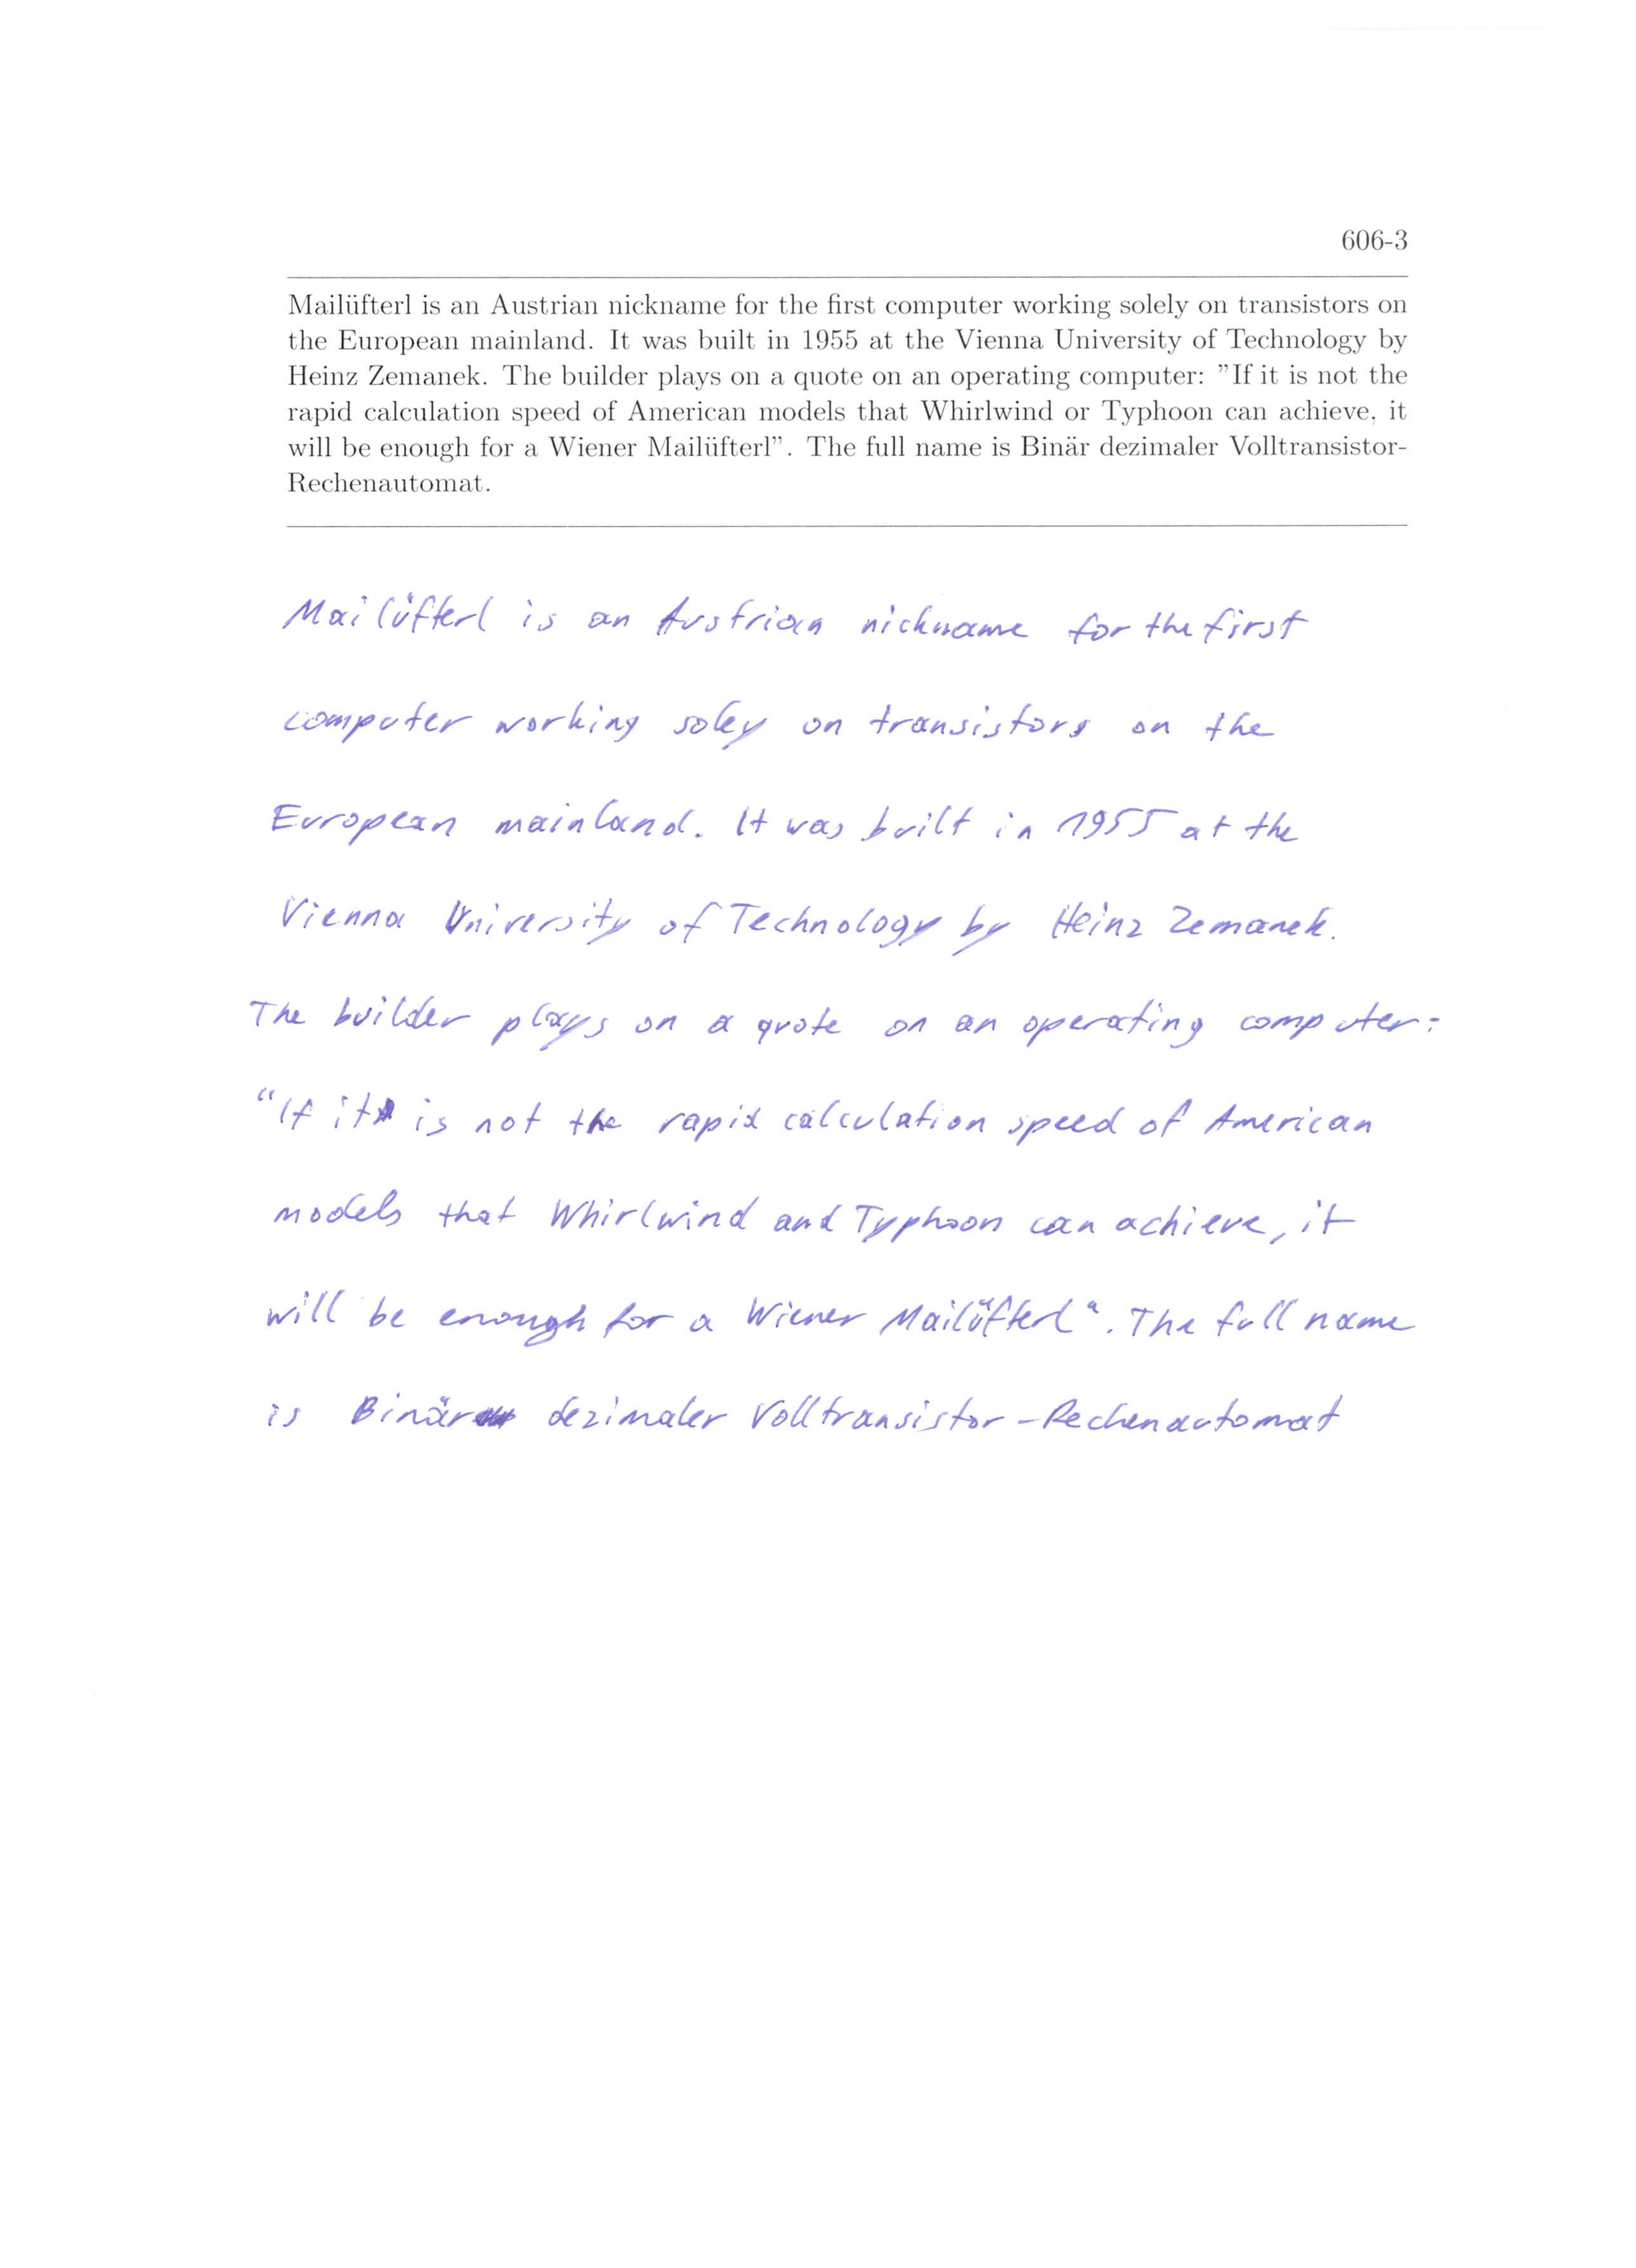 606-3
Mailüfterl is an Austrian nickname for the first computer working solely on transistors on
the European mainland. It was built in 1955 at the Vienna University of Technology by
Heinz Zemanek. The builder plays on a quote on an operating computer: ”If it is not the
rapid calculation speed of American models that Whirlwind or Typhoon can achieve, it
will be enough for a Wiener Mailüfterl”. The full name is Binär dezimaler Volltransistor-
Rechenautomat.
Mailüfterl is an Austrian nickname for the first
computer working soley on transistors on the
European mainland. It was built in 1955 at the
Vienna University of Technology by Heinz Zemanek.
The builder plays on a quote on an operating computer:
“If it is not the rapid calculation speed of American
models that Whirlwind and Typhoon can achieve, it
will be enough for a Wiener Mailüfterl“. The full name
is Binär dezimaler Volltransistor-Rechenautomat